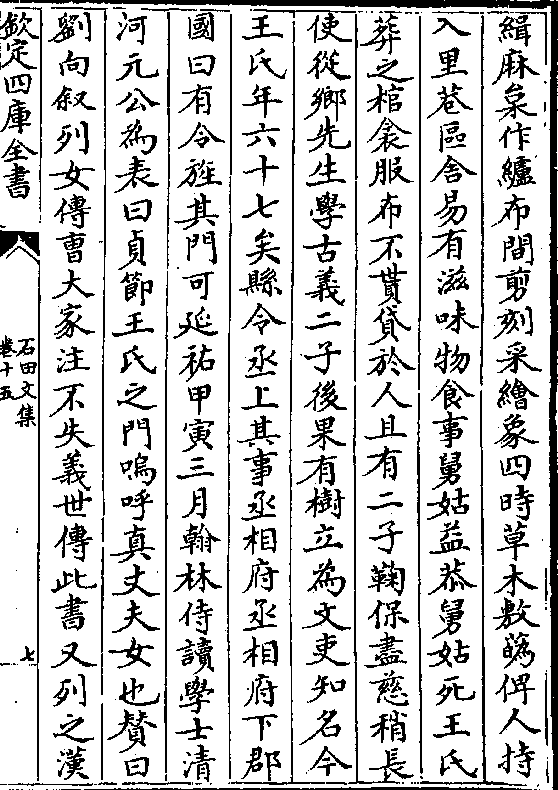 緝麻枲作纑布間剪刻采繪象四時草木敷蘤俾人持
入里巷區舍易有滋味物食事舅姑益恭舅姑死王氏
葬之棺衾服布不貰貸於人且有二子鞠保盡慈稍長
使從鄉先生學古義二子後果有樹立為文吏知名今
王氏年六十七矣縣令丞上其事丞相府丞相府下郡
國曰有令旌其門可延祐甲寅三月翰林侍讀學士清
河元公為表曰貞節王氏之門嗚呼真丈夫女也贊曰
劉向叙列女傳曹大家注不失義世傳此書又列之漢
欽定四庫全書
石田文集
卷十五
七